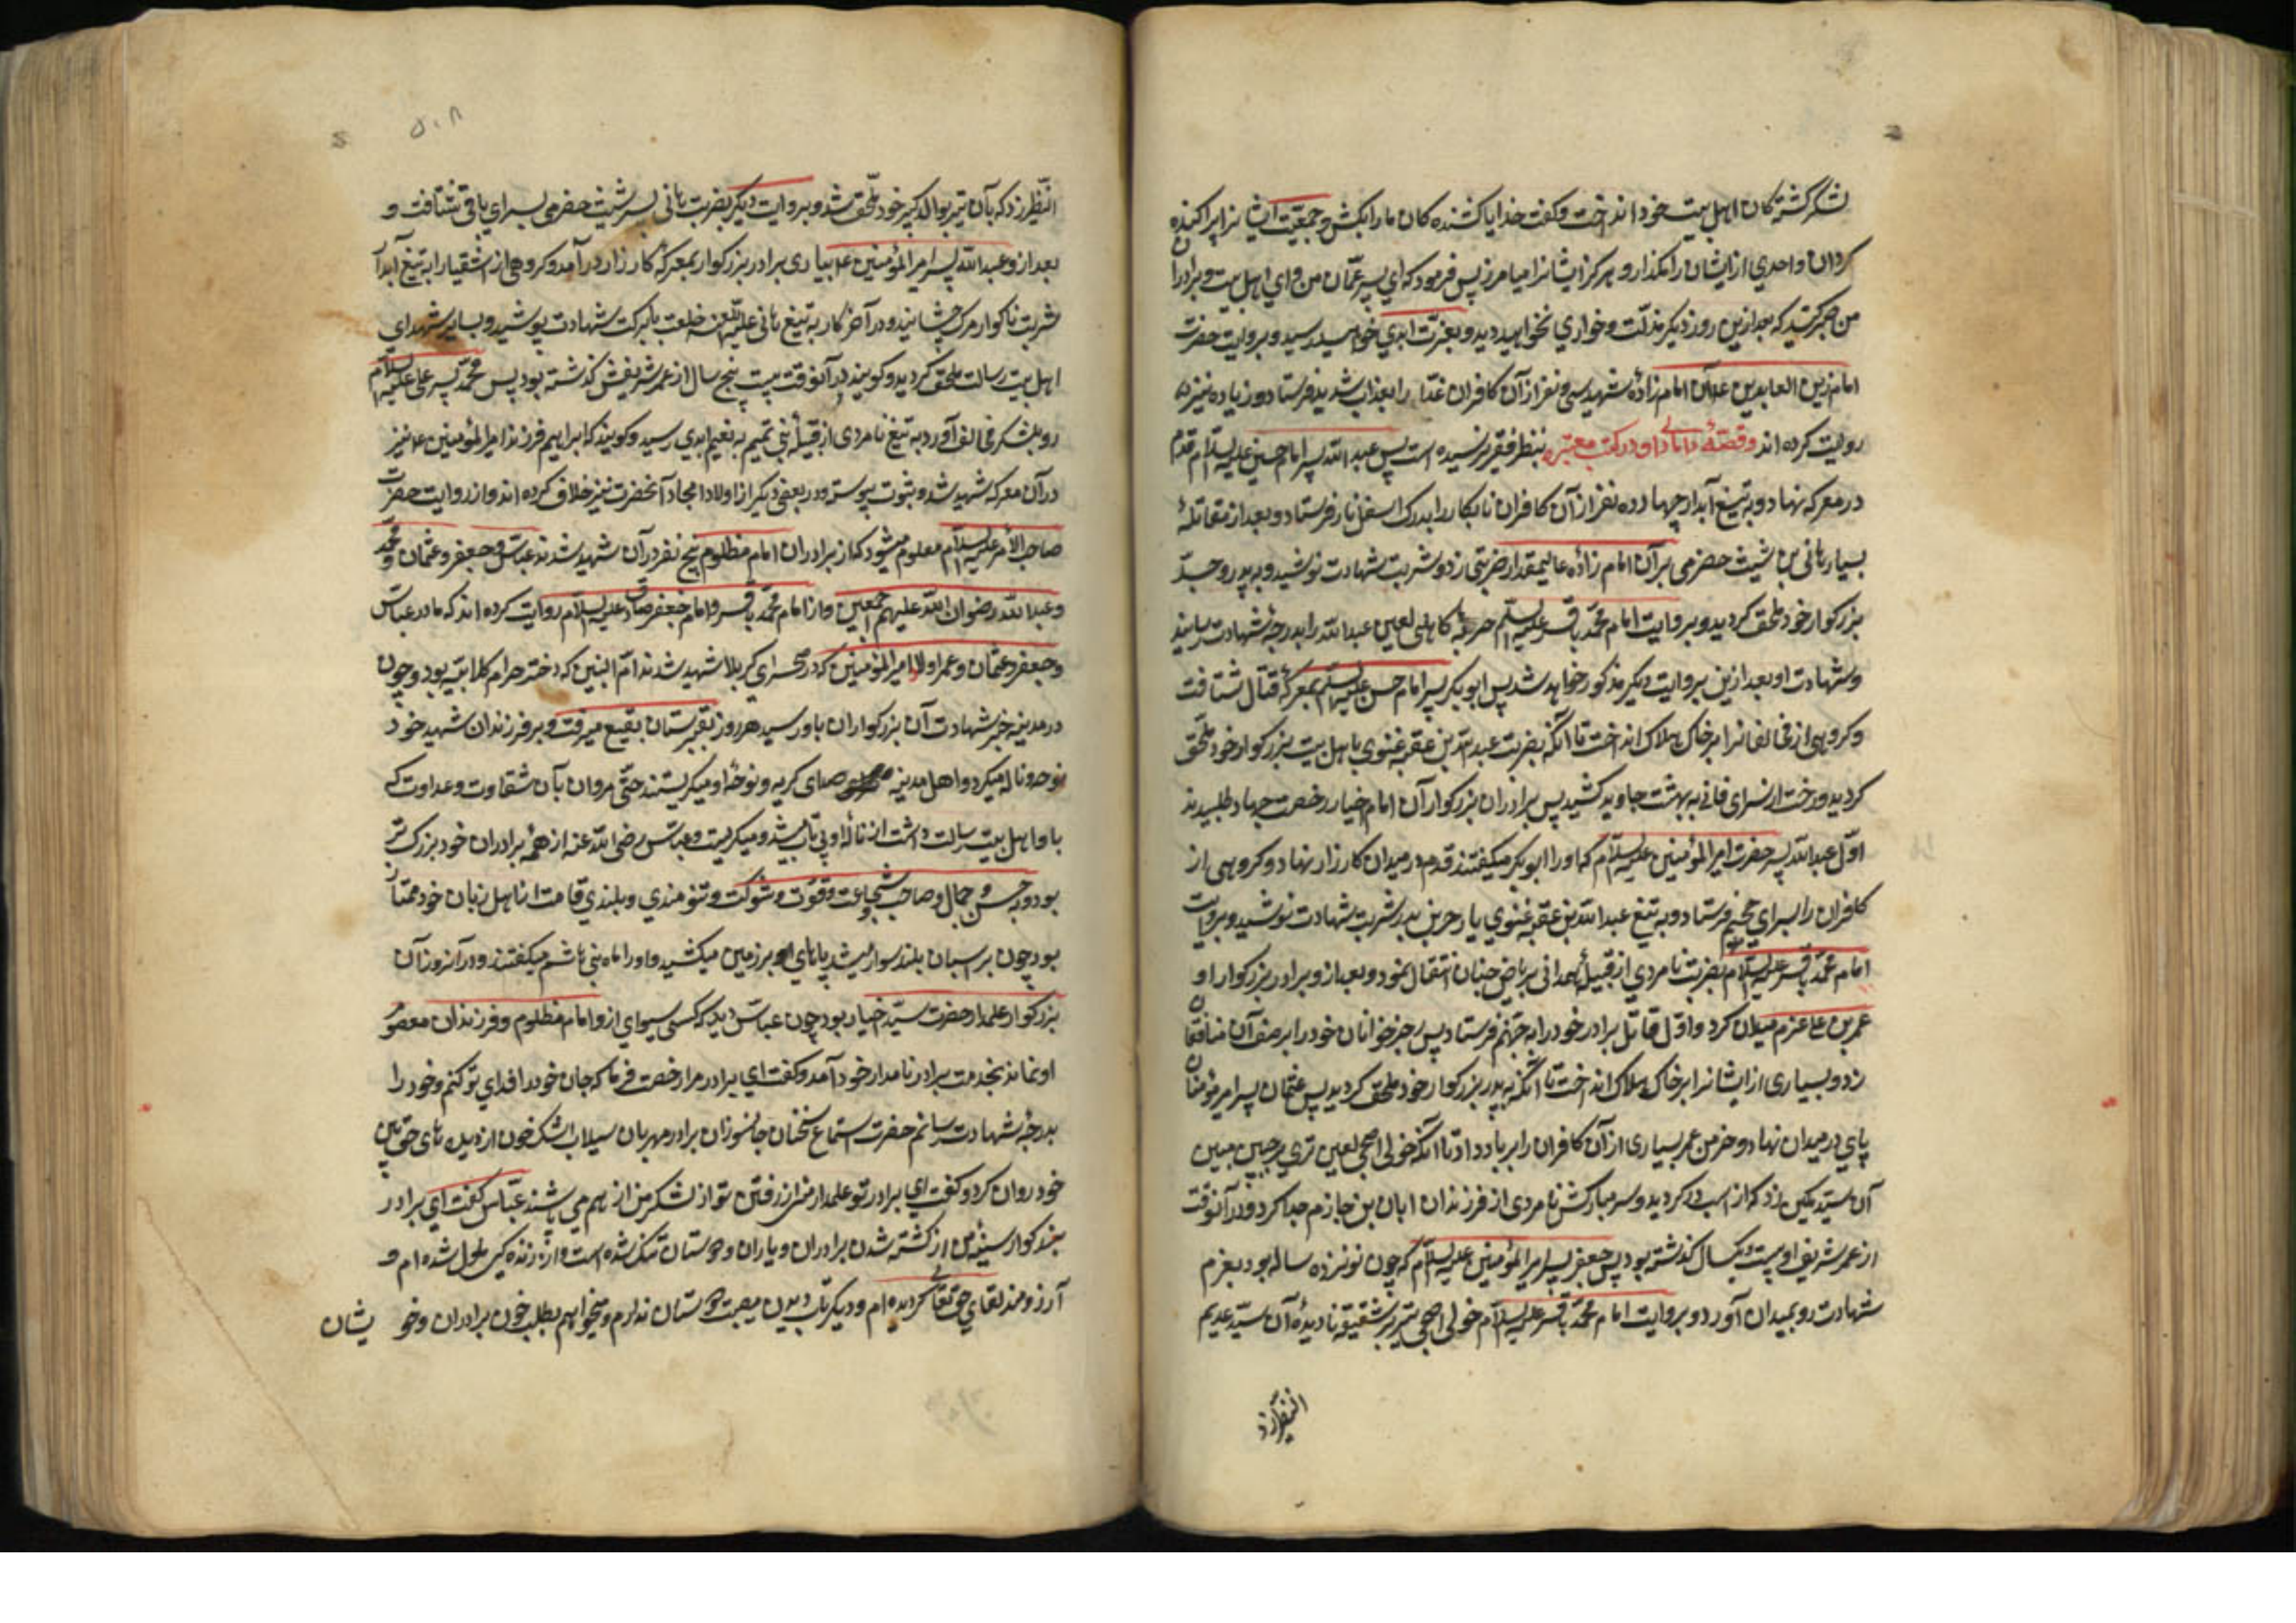 نظر بکشتگان اهل بیت خود انداخت وگفت خدایا کشنده کان ما را بکش و جمعیت ایشانرا پراکنده
کردان واحدی از ایشان را مگذار و هرگز ایشانرا میامرز پس فرمود که ای پسر عمّان من و ای اهل بیت و برادران
من صبر کنید که بعد ازین روز دیگر مذلّت و خواری نخواهید دید و بعزّت ابدی خواهید رسید و بروایت حضرت
امام زین العابدین ع آن امام زادهٔ شهید سی و نفر از آن کافران غدّار را بعذاب شدید فرستاد و زیاده نیز
روایت کرده اند وقصّهٔ دامادی او در کتب معتبره بنظر فقیر نرسیده است پس عبد الله پسر امام حسین علیه السلام قدم
در معرکه نهاد و به تیغ آبدار چهارده نفر از آن کافران نابکار را بدرک اسفل نار فرستاد و بعد از مقاتلهٔ
بسیار هانی بن شیث حضرمی بر آن امام زادهٔ عالیمقدار ضربتی زد و شربت شهادت نوشید و به پدر و جدّ
بزرکوار خود ملحق کردید و بروایت امام محمّد باقر علیه السلام حرملهٔ کاهلی لعین عبد الله را بدرجهٔ شهادت رسانید
وشهادت او بعد ازین بروایت دیکر مذکور خواهد شد پس ابو بکر پسر امام حسن علیه السلام بمعرکهٔ قتال شتافت
وکروهی از مخالفانرا بر خاک هلاک انداخت تا آنکه بضربت عبد الله بن عقبهٔ غنوی با اهل بیت بزرکوار خود ملحق
کردید و رخت از سرای فانی به بهشت جاوید کشید پس برادران بزرکوار آن امام اخیار رخصت جهاد طلبیدند
اوّل عبد الله پسر حضرت امیر المؤمنین علیه السلام که او را ابو بکر میکفتند قدم در میدان کارزار نهاد و کروهی از
کافران را بسرای جحیم فرستاد و به تیغ عبد الله بن عقبهٔ غنوی یا زحر بن بدر شربت شهادت نوشید و بروایت
امام محمّد باقر علیه السلام بضربت نامردی از قبیلهٔ همدانی بریاض جنان انتقال نمود و بعد از و برادر بزرکوار او
عمر بن علی عزم میدان کرد و اوّل قاتل برادر خود را به جهنّم فرستاد پس رجز خوانان خود را بر صف آن منافقان
زد و بسیاری از ایشانرا بر خاک هلاک انداخت تا آنکه به پدر بزرکوار خود ملحق کردید پس عثمان پسر امیر مؤمنان
پای در میدان نهاد و خرمن عمر بسیاری از آن کافران را بر باد داد تا آنکه خولی اصبحی لعین تیری بر جبین مبین
آن سیّد مکین زد که از اسب در کردید و سر مبارکش نامردی از فرزندان ابان بن حازم جدا کرد و در آنوقت
از عمر شریف او بیست ویکسال کذشته بود پس جعفر پسر امیر المؤمنین علیه السلام که چون نوزده ساله بود بعزم
شهادت رو بمیدان آورد و بروایت امام محمّد باقر علیه السلام خولی اصبحی تیری بر شقیقه یا دیدهٔ آن سیّد عدیم
النظیر زد
النّظیر زد که بآن تیر بوالد کبیر خود ملحق شد و بروایت دیکر بضربت هانی پسر شیث حضرمی بسرای باقی شتافت و
بعد از و عبد الله پسر امیر المؤمنین ع بیاری برادر بزرکوار بمعرکهٔ کارزار در آمد و کروهی از اشقیا را به تیغ آبدار
شربت ناکوار مرک چشانید و در آخر کار به تیغ هانی علیه اللعن خلعت با برکت شهادت پوشید و بسایر شهدای
اهل بیت رسالت ملحق کردید و کویند در آنوقت بیست پنج سال از عمر شریفش کذشته بود پس محمّد پسر علی علیه السلام
رو بلشکر مخالف آورد به تیغ نامردی از قبیلهٔ بنی تمیم به نعیم ابدی رسید و کویند که ابراهیم فرزند امیر المؤمنین ع نیز
در آن معرکه شهید شد و بثبوت پیوسته و در بعضی دیکر از اولاد امجاد آنحضرت نیز خلاف کرده اند و از روایت حضرت
صاحب الأمر علیه السلام معلوم میشود که از برادران امام مظلوم پنج نفر در آن شهید شدند عباس وجعفر وعثمان ومحمّد
وعبد الله رضوان الله علیهم اجمعین و از امام محمّد باقر و امام جعفر صادق علیه السلام روایت کرده اند که مادر عباس
وجعفر و عثمان و عمر اولاد امیر المؤمنین که در صحرای کربلا شهید شدند امّ البنین که دختر حرام کلابیّه بود و چون
در مدینه خبر شهادت آن بزرکواران باو رسید هر روز بقبرستان بقیع میرفت و بر فرزندان شهید خود
نوحه و ناله میکرد و اهل مدینه صدای کریه و نوحهٔ او میکریستند حتّی مروان بآن شقاوت وعداوت که
با و اهل بیت رسالت داشت از نالهٔ او بی تاب میشد و میکریست و عبّاس رضی الله عنه از همهٔ برادران خود بزرک تر
بود و بحسن و جمال و صاحب شجاعت و قوّت و شوکت و تنومندی و بلندی قامت از اهل زمان خود ممتاز
بود چون بر اسبان بلند سوار میشد پاهای او بر زمین میکشید و او را ماه بنی هاشم میکفتند و در آنروز آن
بزرکوار علمدار حضرت سیّد اخیار بود چون عباس دید که کسی سوای از و امام مظلوم و فرزندان معصوم
او نماند بخدمت برادر نامدار خود آمد وکفت ای برادر مرا رخصت فرما که جان خود را فدای تو کنم و خود را
بدرجهٔ شهادت رسانم حضرت استماع سخنان جانسوز آن برادر مهربان سیلاب اشک خون از دیده های حق بین
خود روان کرد وکفت ای برادر تو علمدار منی از رفتن تو از لشکر من از هم می پاشند عبّاس کفت ای برادر
بزرکوار سینهٔ من از کشته شدن برادران و یاران و دوستان تنک شده است و از زنده کی ملول شده ام و
آرزومند لقای حق تعالی کردیده ام و دیکر تاب دیدن مصیبت دوستان ندارم و میخواهم بطلب خون برادران و خویشان